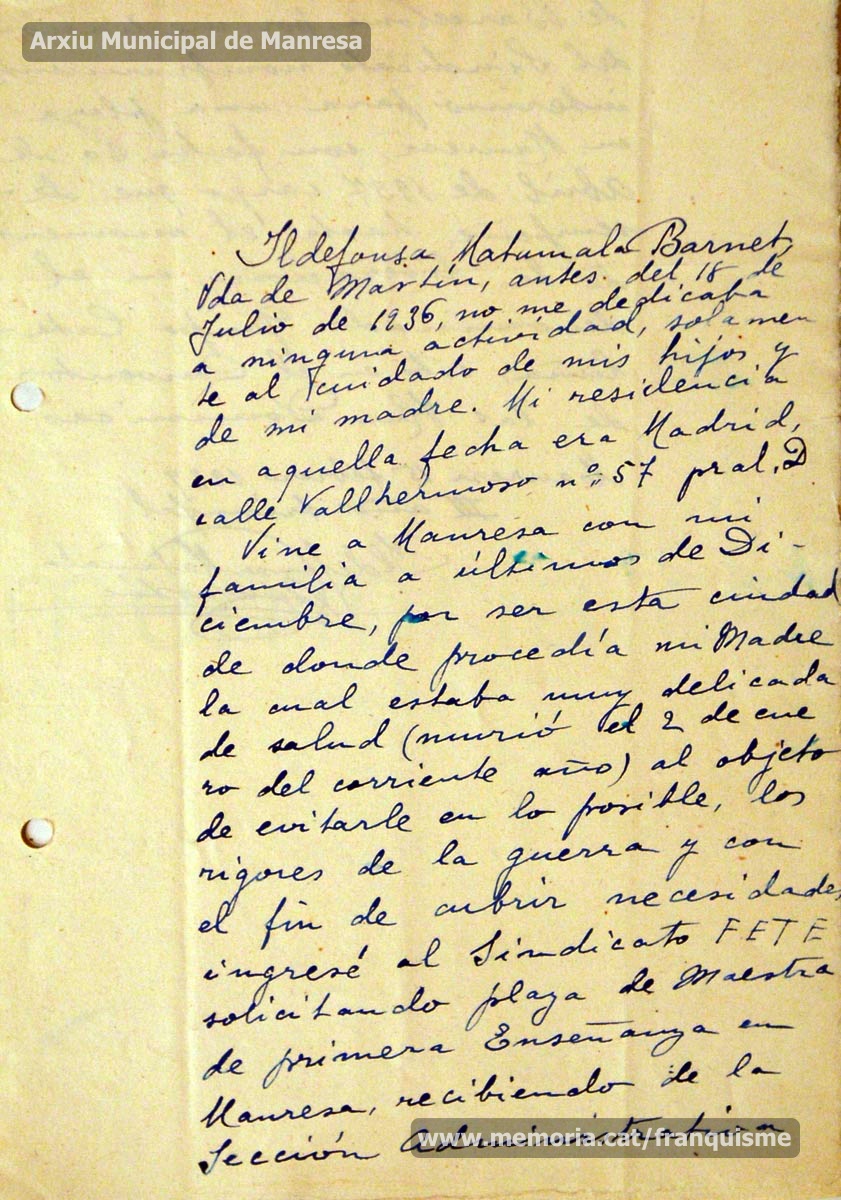 Arxiu Municipal de Manresa
Ildefonsa Matamala Barnet,
Vda de Martín, antes. del 18 de
Julio de 1936, no me dedicaba
a ninguna actividad, solamen
te al cuidado de mis hijos y
de mi madre. Mi residencia
en aquella fecha era Madrid,
calle Vallhermoso nº 57 pral. D
Vine a Manresa con mi
familia a últimos de Di-
ciembre, por ser esta ciudad
de donde procedía mi Madre
la cual estaba muy delicada
de salud (murió el 2 de ene
ro del corriente año) al objeto
de evitarle en lo posible, los
rigores de la guerra y con
el fin de cubrir necesidades,
ingresé al Sindicato FETE
solicitando plaza de Maestra
de primera Enseñanza en
Manresa, recibiendo de la
Sección Administrativa
www.memoria.cat/franquisme